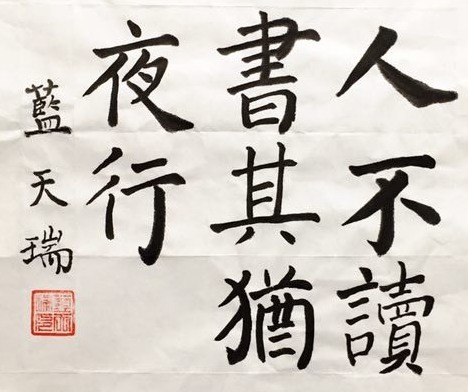 人不讀
書其猶
夜行
藍天瑞